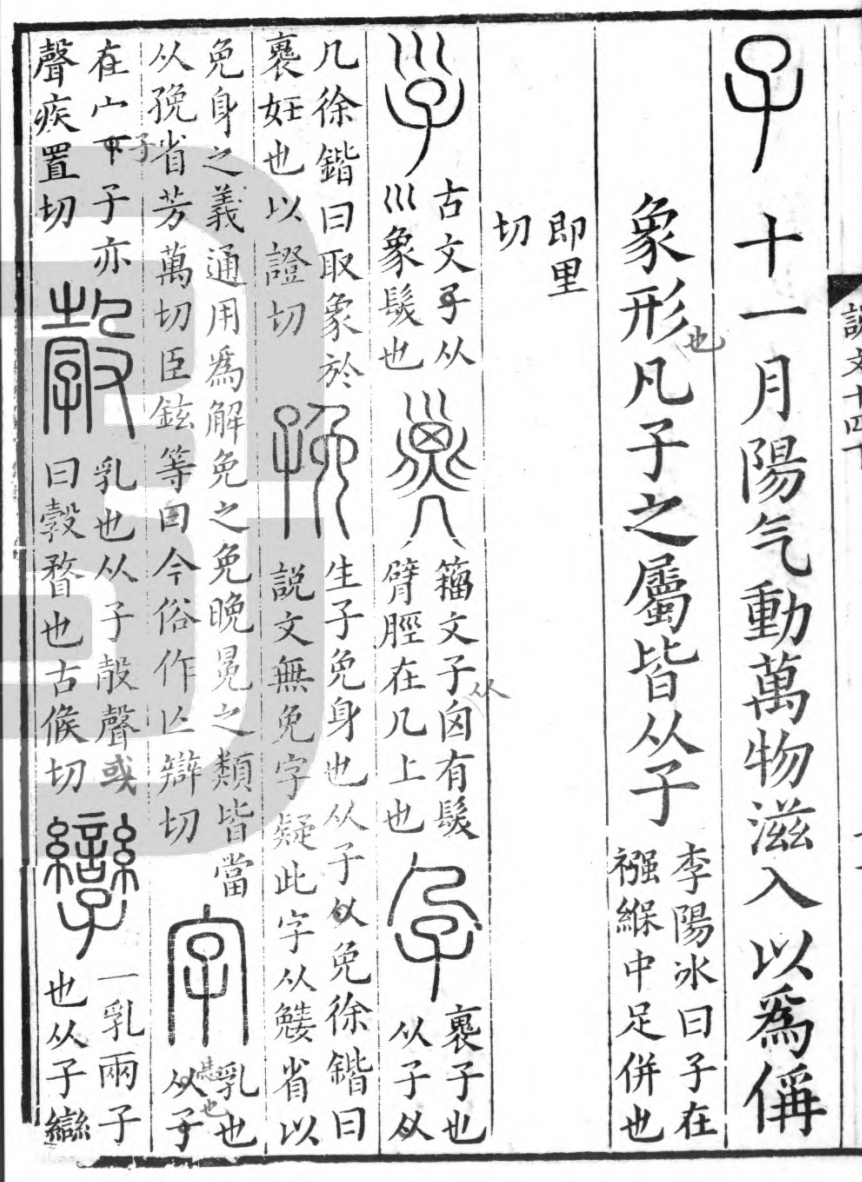 說文十四下
子 十一月陽气動萬物滋入以爲偁
象形凡子之屬皆从子
也
李陽冰曰子在
襁緥中足併也
即里
切
𡿹 古文子从
巛象髮也
𢀇 籀文子囟有髮
臂脛在几上也
从
孕 裹子也
从子从
几徐鍇曰取象於
裹妊也以證切
㝃 生子免身也从子从免徐鍇曰
說文無免字疑此字从㝃省以
免身之義通用爲解免之免晚冕之類皆當
从㝃省芳萬切臣鉉等曰今俗作亾辯切
字 乳也
从子
也
在宀下子亦
聲疾置切
子
㝅 乳也从子㱿聲或
曰㝅瞀也古候切
孿 一乳兩子
也从子䜌